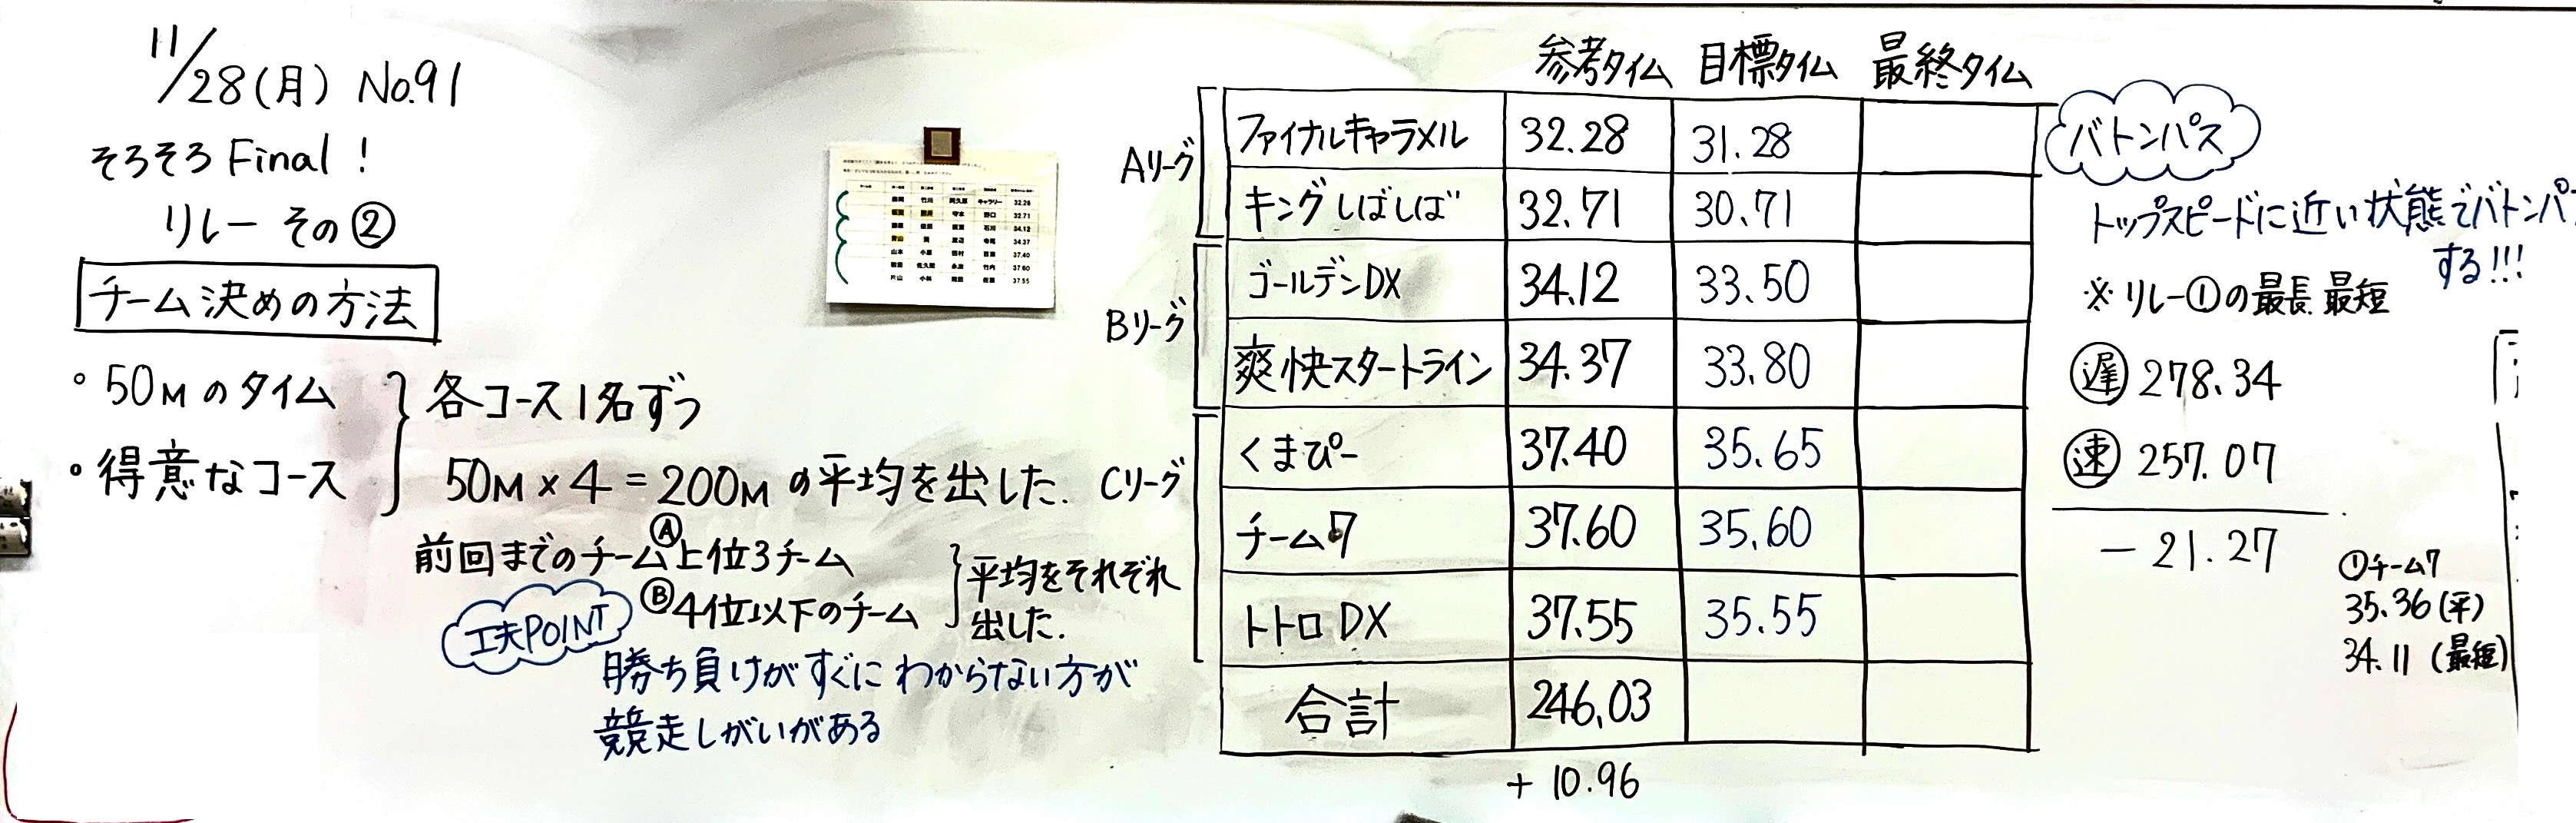 11/28(月) No.91
そろそろ Final !
リレー その②
チーム決めの方法
。50Mのタイム
。得意なコース
各コース1名ずつ
50M×4=200Mの平均を出した.
前回までのチーム Ⓐ上位3チーム
Ⓑ4位以下のチーム
平均をそれぞれ
出した.
工夫POINT
勝ち負けがすぐにわからない方が
競走しがいがある
参考タイム 目標タイム 最終タイム
Aリーグ
ファイナルキャラメル 32.28 31.28
キングしばしば 32.71 30.71
Bリーグ
ゴールデンDX 34.12 33.50
爽快スタートライン 34.37 33.80
Cリーグ
くまぴー 37.40 35.65
チーム7 37.60 35.60
トトロDX 37.55 35.55
合計 246.03
+10.96
バトンパス
トップスピードに近い状態でバトンパス
する!!!
※リレー①の最長 最短
遅 278.34
速 257.07
-21.27
①チーム7
35.36(平)
34.11(最短)